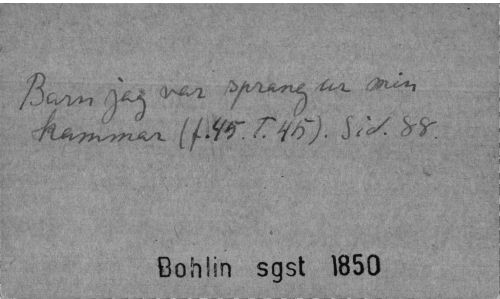 Barn jag var sprang ur min
kammar (f. 45. T. 45). Sid. 88.
Bohlin sgst 1850